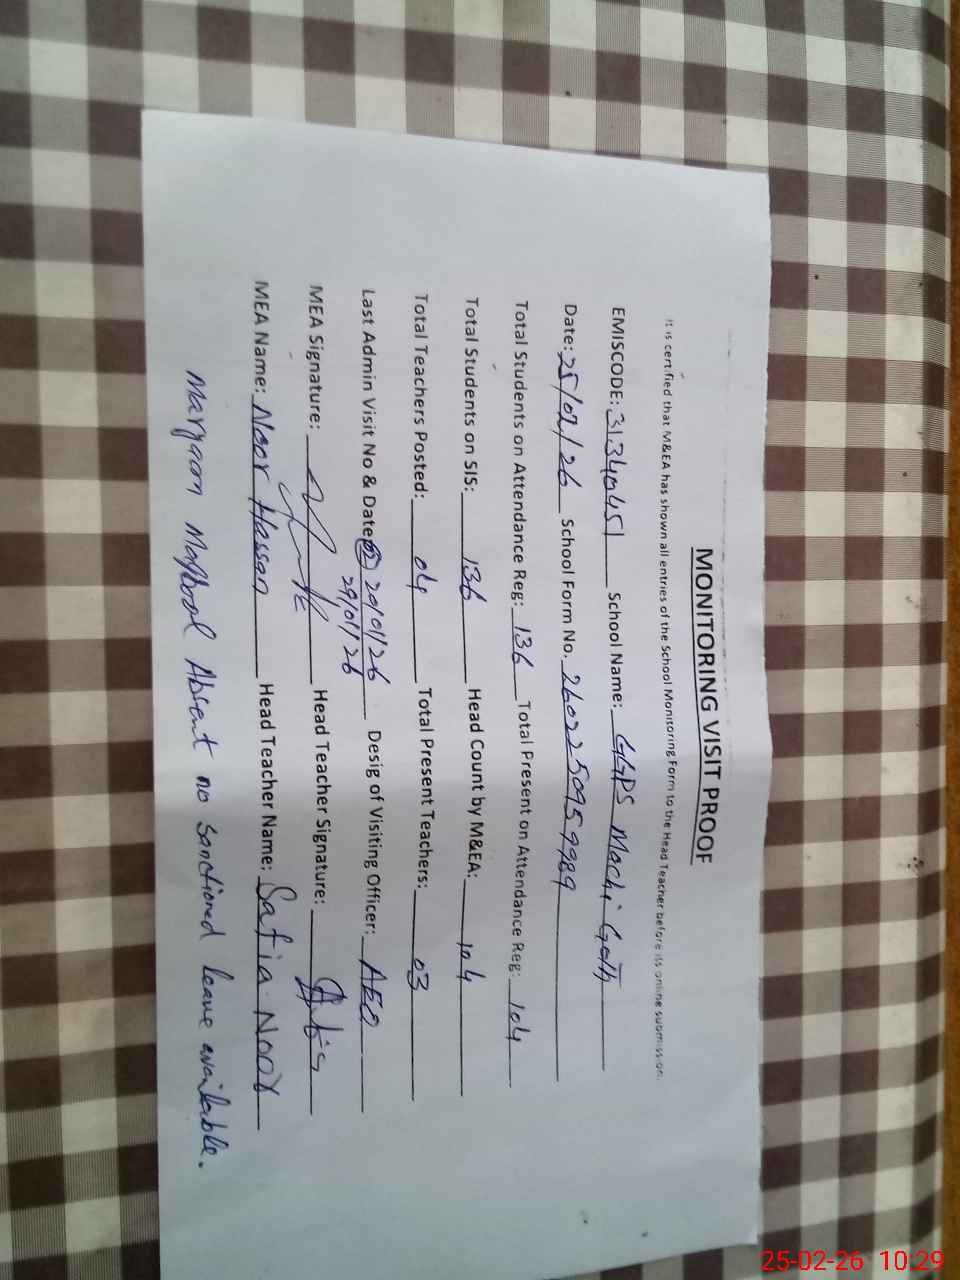 MONITORING VISIT PROOF
It is certified that M&EA has shown all entries of the School Monitoring Form to the Head Teacher before its online submission.
EMISCODE: 31340451 School Name: GGPS Machi Goth
Date: 25/02/26 School Form No. 2602250959989
Total Students on Attendance Reg: 136 Total Present on Attendance Reg: 104
Total Students on SIS: 136 Head Count by M&EA: 104
Total Teachers Posted: 04 Total Present Teachers: 03
Last Admin Visit No & Date: 02 20/01/26 Desig of Visiting Officer: AEO
29/01/26
MEA Signature: Head Teacher Signature:
MEA Name: Noor Hassan Head Teacher Name: Safia Noor
Maryam Maqbool Absent no sanctioned leave available.
25-02-26 10:29